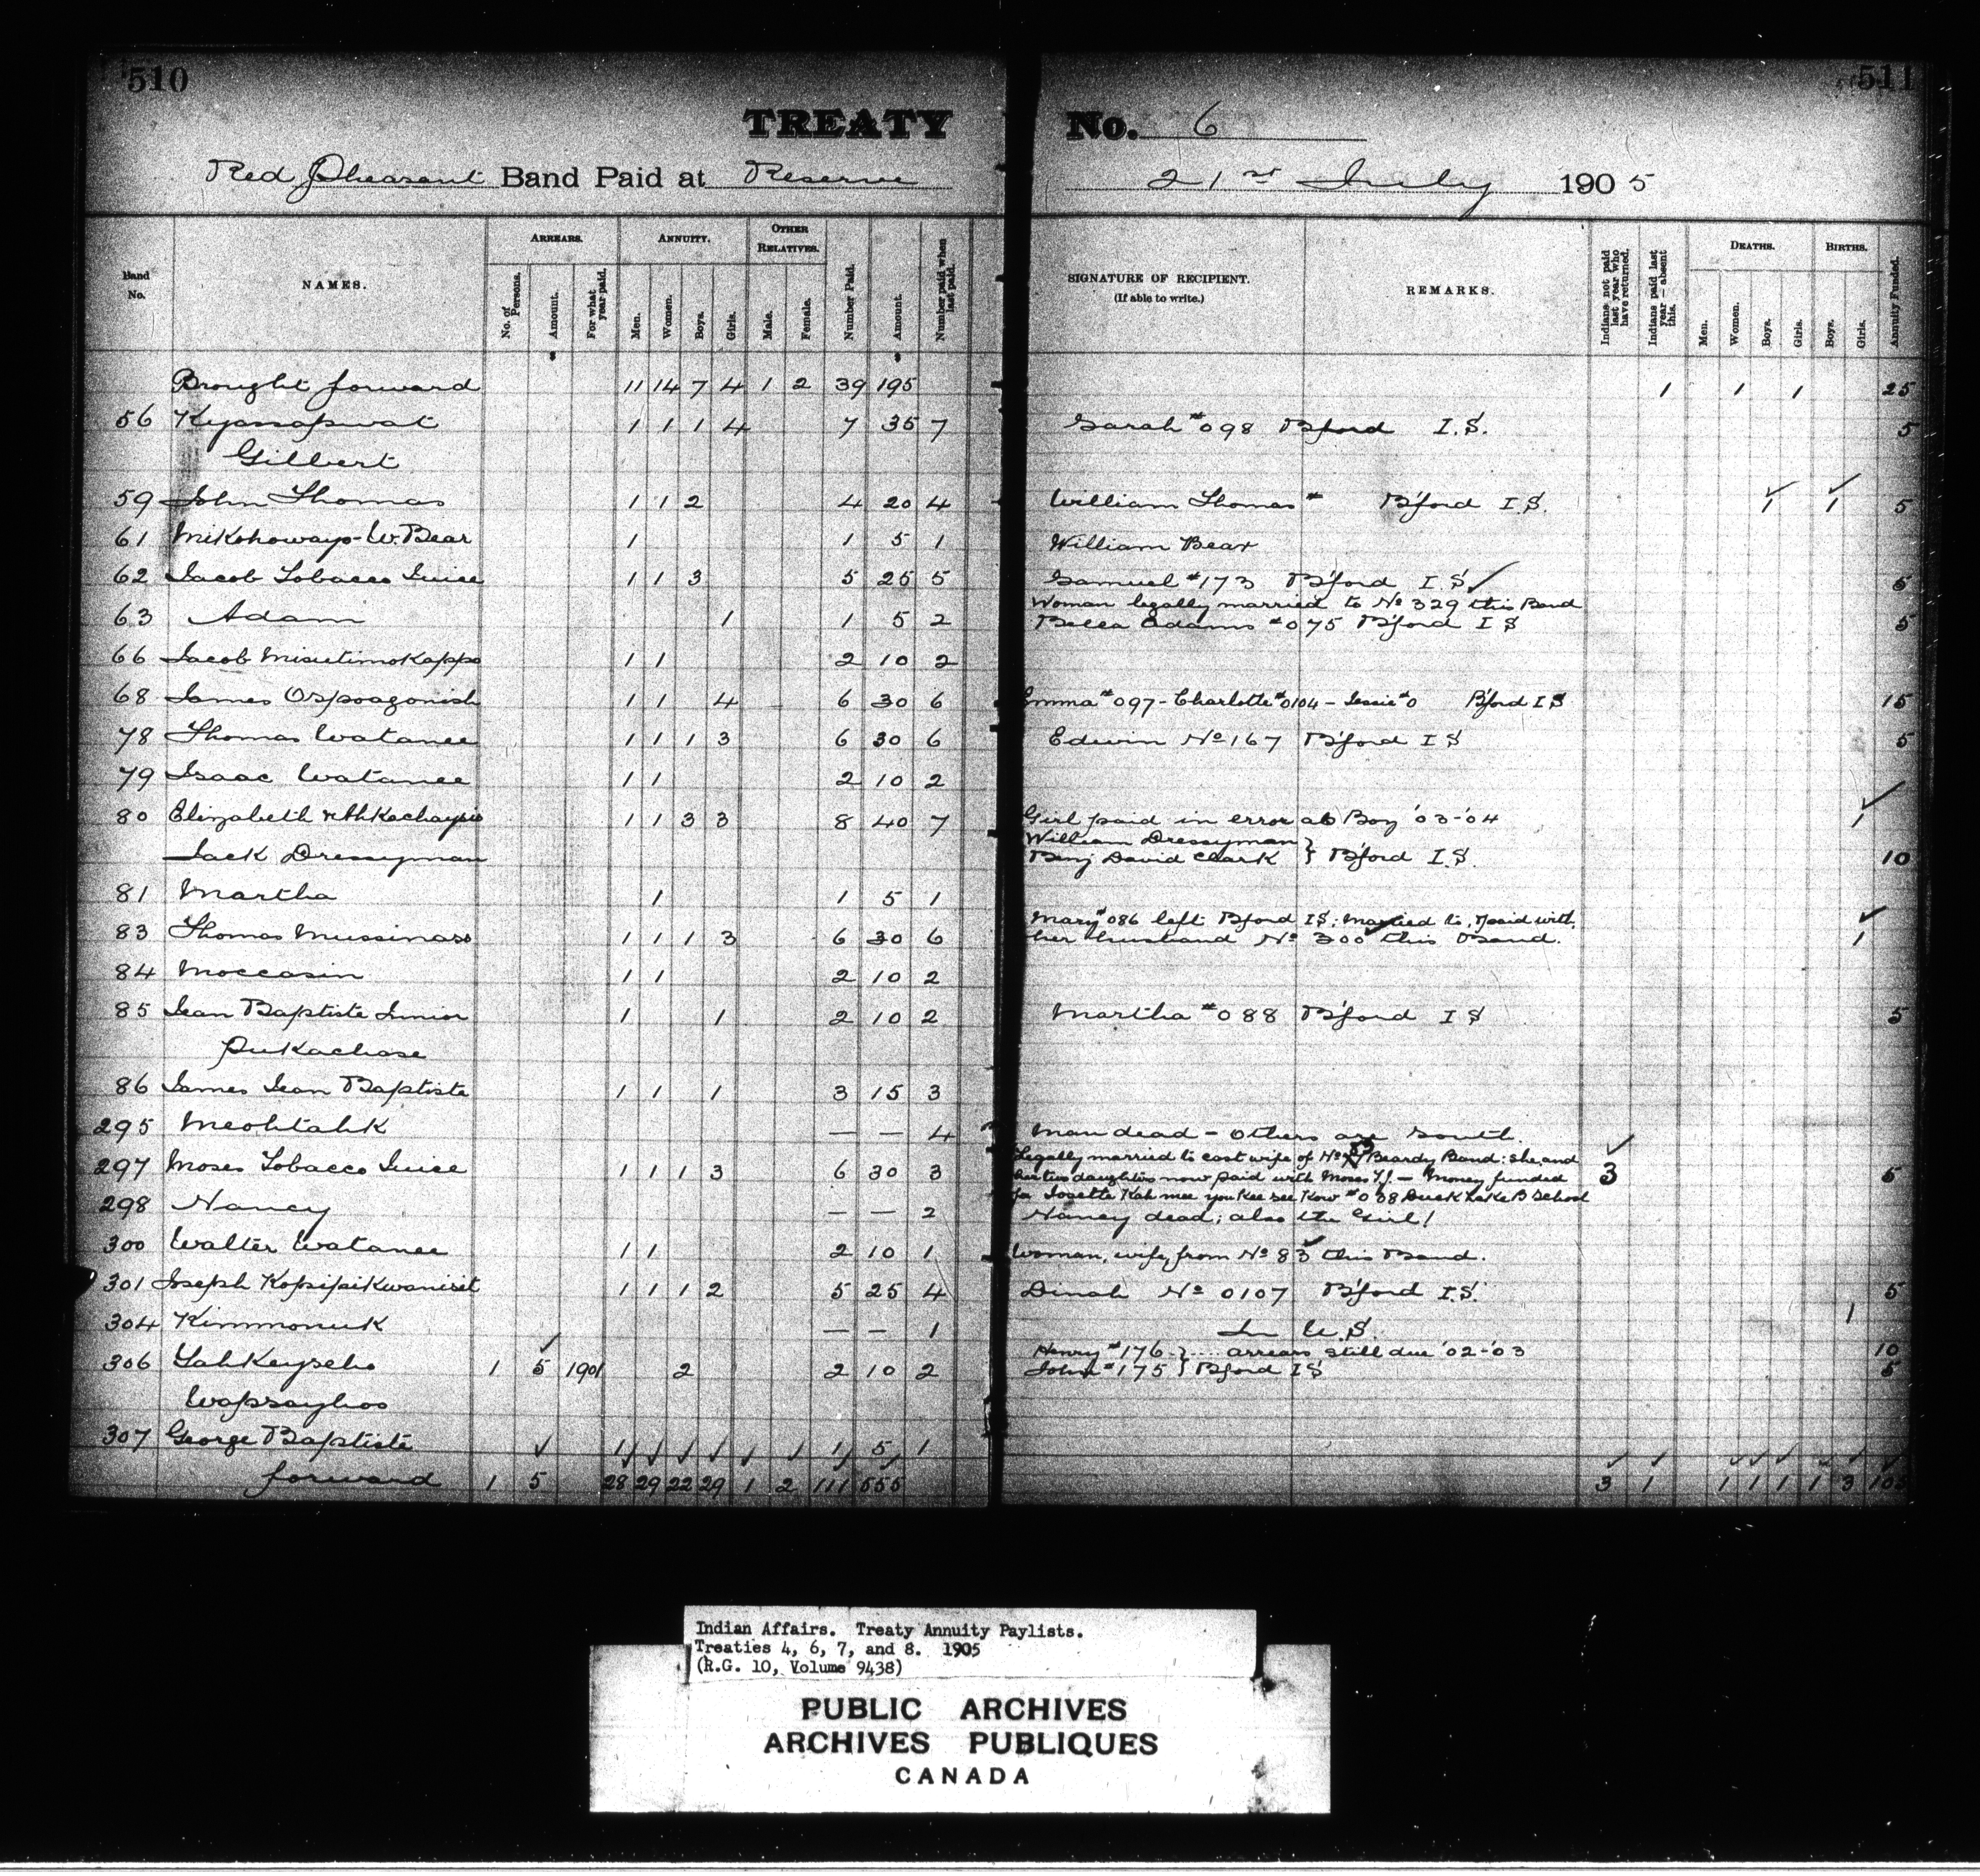 510
511
TREATY No. 6
Red Pheasant Band Paid at Reserve 21st July 1905
Band No.
NAMES.
ARREARS.
No. of Persons.
Amount.
For what year paid.
ANNUITY.
Men.
Women.
Boys.
Girls.
OTHER RELATIVES.
Male.
Female.
Number Paid.
Amount.
Number paid when last paid.
SIGNATURE OF RECIPIENT.
(If able to write.)
REMARKS.
Indians not paid last year who have returned.
Indians paid last year — absent this.
DEATHS.
Men.
Women.
Boys.
Girls.
BIRTHS.
Boys.
Girls.
Annuity Funded.
Brought forward 11 14 7 4 1 2 39 195 1 1 1 25
56 Kyassapwat 1 1 1 4 7 35 7 Sarah #098 B'ford I.S. 5
Gilbert
59 John Thomas 1 1 2 4 20 4 William Thomas # B'ford I.S. 1 1 5
61 Mikohowayo-W. Bear 1 1 5 1 William Bear
62 Jacob Tobacco Juice 1 1 3 5 25 5 Samuel #173 B'ford I S 5
Woman legally married to No 329 this Band
63 Adam 1 1 5 2 Bella Adams #075 B'ford I S 5
66 Jacob Misutimokappo 1 1 2 10 2
68 James Ospoagonish 1 1 4 6 30 6 Emma #097 - Charlotte #0104 - Jessie #0 B'ford I S 15
78 Thomas Watanee 1 1 1 3 6 30 6 Edwin No 167 B'ford I S 5
79 Isaac Watanee 1 1 2 10 2
80 Elizabeth 1 1 3 3 8 40 7 Girl paid in error as Boy '03-'04 1
William Dressyman
Jack Dressyman Benj David Clark } B'ford I.S. 10
81 Martha 1 1 5 1
Mary #086 left B'ford I S; Married to, & paid with,
83 Thomas Mussinass 1 1 1 3 6 30 6 her husband No 300 this Band. 1
84 Moccasin 1 1 2 10 2
85 Jean Baptiste Junior 1 1 2 10 2 Martha #088 B'ford I S 5
Pukachase
86 James Jean Baptiste 1 1 1 3 15 3
295 Meohtahk — — 4 Man dead - others are South.
Legally married to cast wife of No Beardy Band: She and
297 Moses Tobacco Juice 1 1 1 3 6 30 3 her two daughters now paid with Moses T.J. - Money funded 3 5
for Josette Kah mee you Kee see Kow #038 Duck Lake B School
298 Nancy — — 2 Nancy dead; also the Girl!
300 Walter Watanee 1 1 2 10 1 Woman, wife, from No 83 this Band.
301 Joseph Kopipikwanisit 1 1 1 2 5 25 4 Dinah No 0107 B'ford I.S. 5
304 Kimmonuk — — 1 In U.S. 1
Henry #176 } .... arrears still due '02-'03 10
306 Yahkeyseho 1 5 1901 2 2 10 2 John #175 } B'ford I S 5
Wapsayhoo
307 George Baptiste 1 1 5 1
forward 1 5 28 29 22 29 1 2 111 555 3 1 1 1 1 1 3 105
Indian Affairs. Treaty Annuity Paylists.
Treaties 4, 6, 7, and 8. 1905
(R.G. 10, Volume 9438)
PUBLIC ARCHIVES
ARCHIVES PUBLIQUES
CANADA